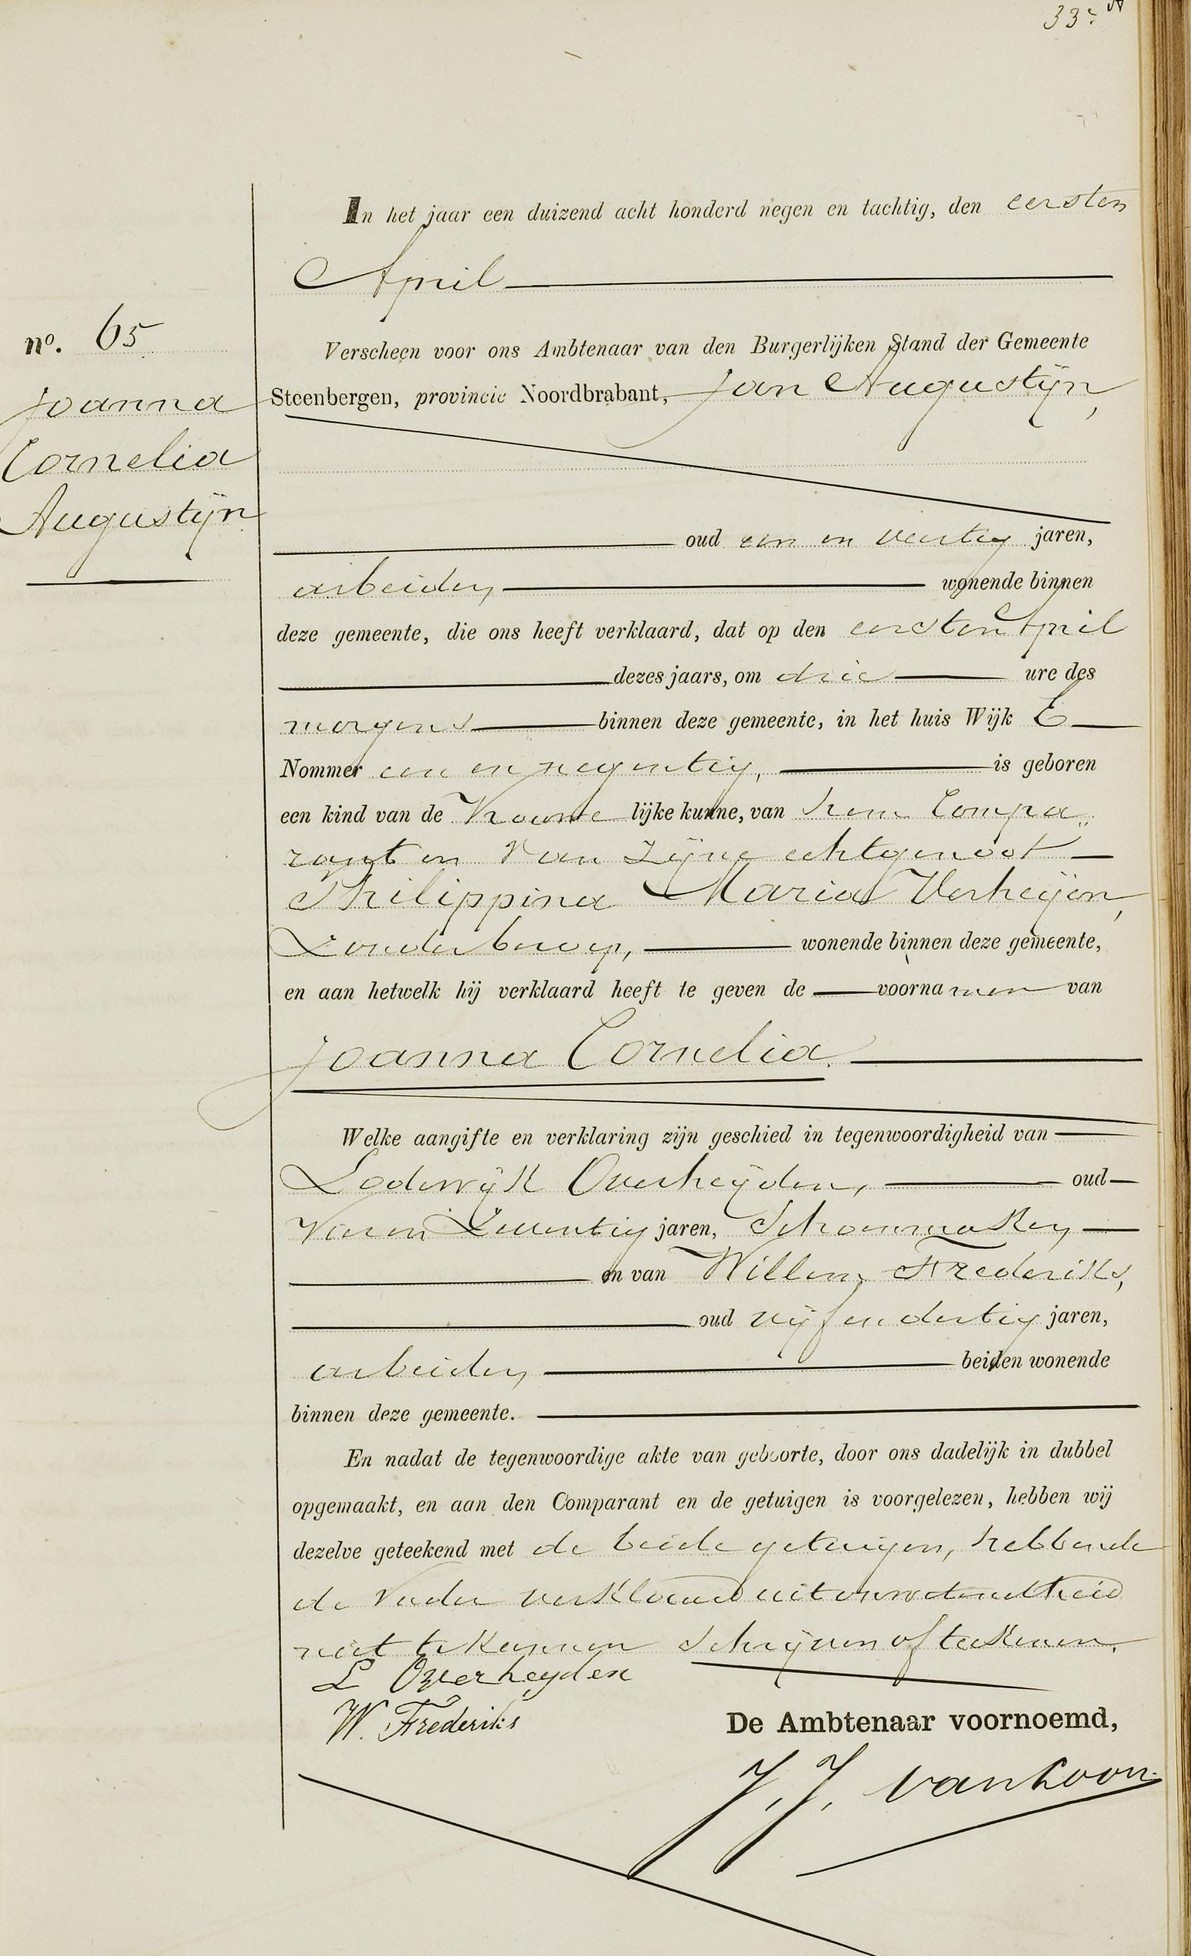 33.
In het jaar een duizend acht honderd negen en tachtig, den eersten
April
no. 65
Verscheen voor ons Ambtenaar van den Burgerlijken Stand der Gemeente
Joanna
Steenbergen, provincie Noordbrabant, Jan Augustijn,
Cornelia
Augustijn
oud een en veertig jaren,
arbeider, wonende binnen
deze gemeente, die ons heeft verklaard, dat op den eersten April
dezes jaars, om drie ure des
morgens binnen deze gemeente, in het huis Wijk E
Nommer een en negentig, is geboren
een kind van de Vrouwelijke kunne, van hem Compa„
rant en van zijne echtgenoot
Philippina Maria Verheijen,
Zonder beroep, wonende binnen deze gemeente,
en aan hetwelk hij verklaard heeft te geven de voornamen van
Joanna Cornelia.
Welke aangifte en verklaring zijn geschied in tegenwoordigheid van
Lodewijk Overheijden, oud
jaren, Schoenmaker,
en van Willem Frederiks,
oud vijf en dertig jaren,
arbeider, beiden wonende
binnen deze gemeente.
En nadat de tegenwoordige akte van geboorte, door ons dadelijk in dubbel
opgemaakt, en aan den Comparant en de getuigen is voorgelezen, hebben wij
dezelve geteekend met de beide getuigen, hebbende
de Vader verklaard uit onvotendheid
niet te kunnen schrijven of teekenen.
L Overheyden
W. Frederiks
De Ambtenaar voornoemd,
J. J. van Loon